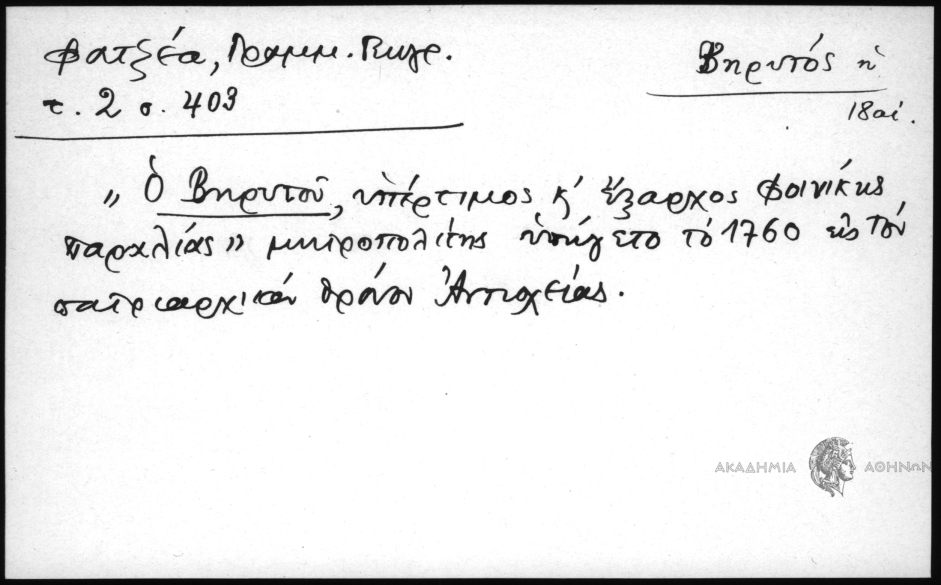 Φατζέα, Γραμμ. Γεωγρ.
τ. 2 σ. 403
Βηρυτός ἡ
18 αἰ.
„ Ὁ Βηρυτοῦ, ὑπέρτιμος κ' ἔξαρχος Φοινίκης
παραλίας” μητροπολίτης ὑπήγετο τό 1760 εἰς τόν
πατριαρχικόν θρόνον Ἀντιοχείας.
ΑΚΑΔΗΜΙΑ ΑΘΗΝΩΝ